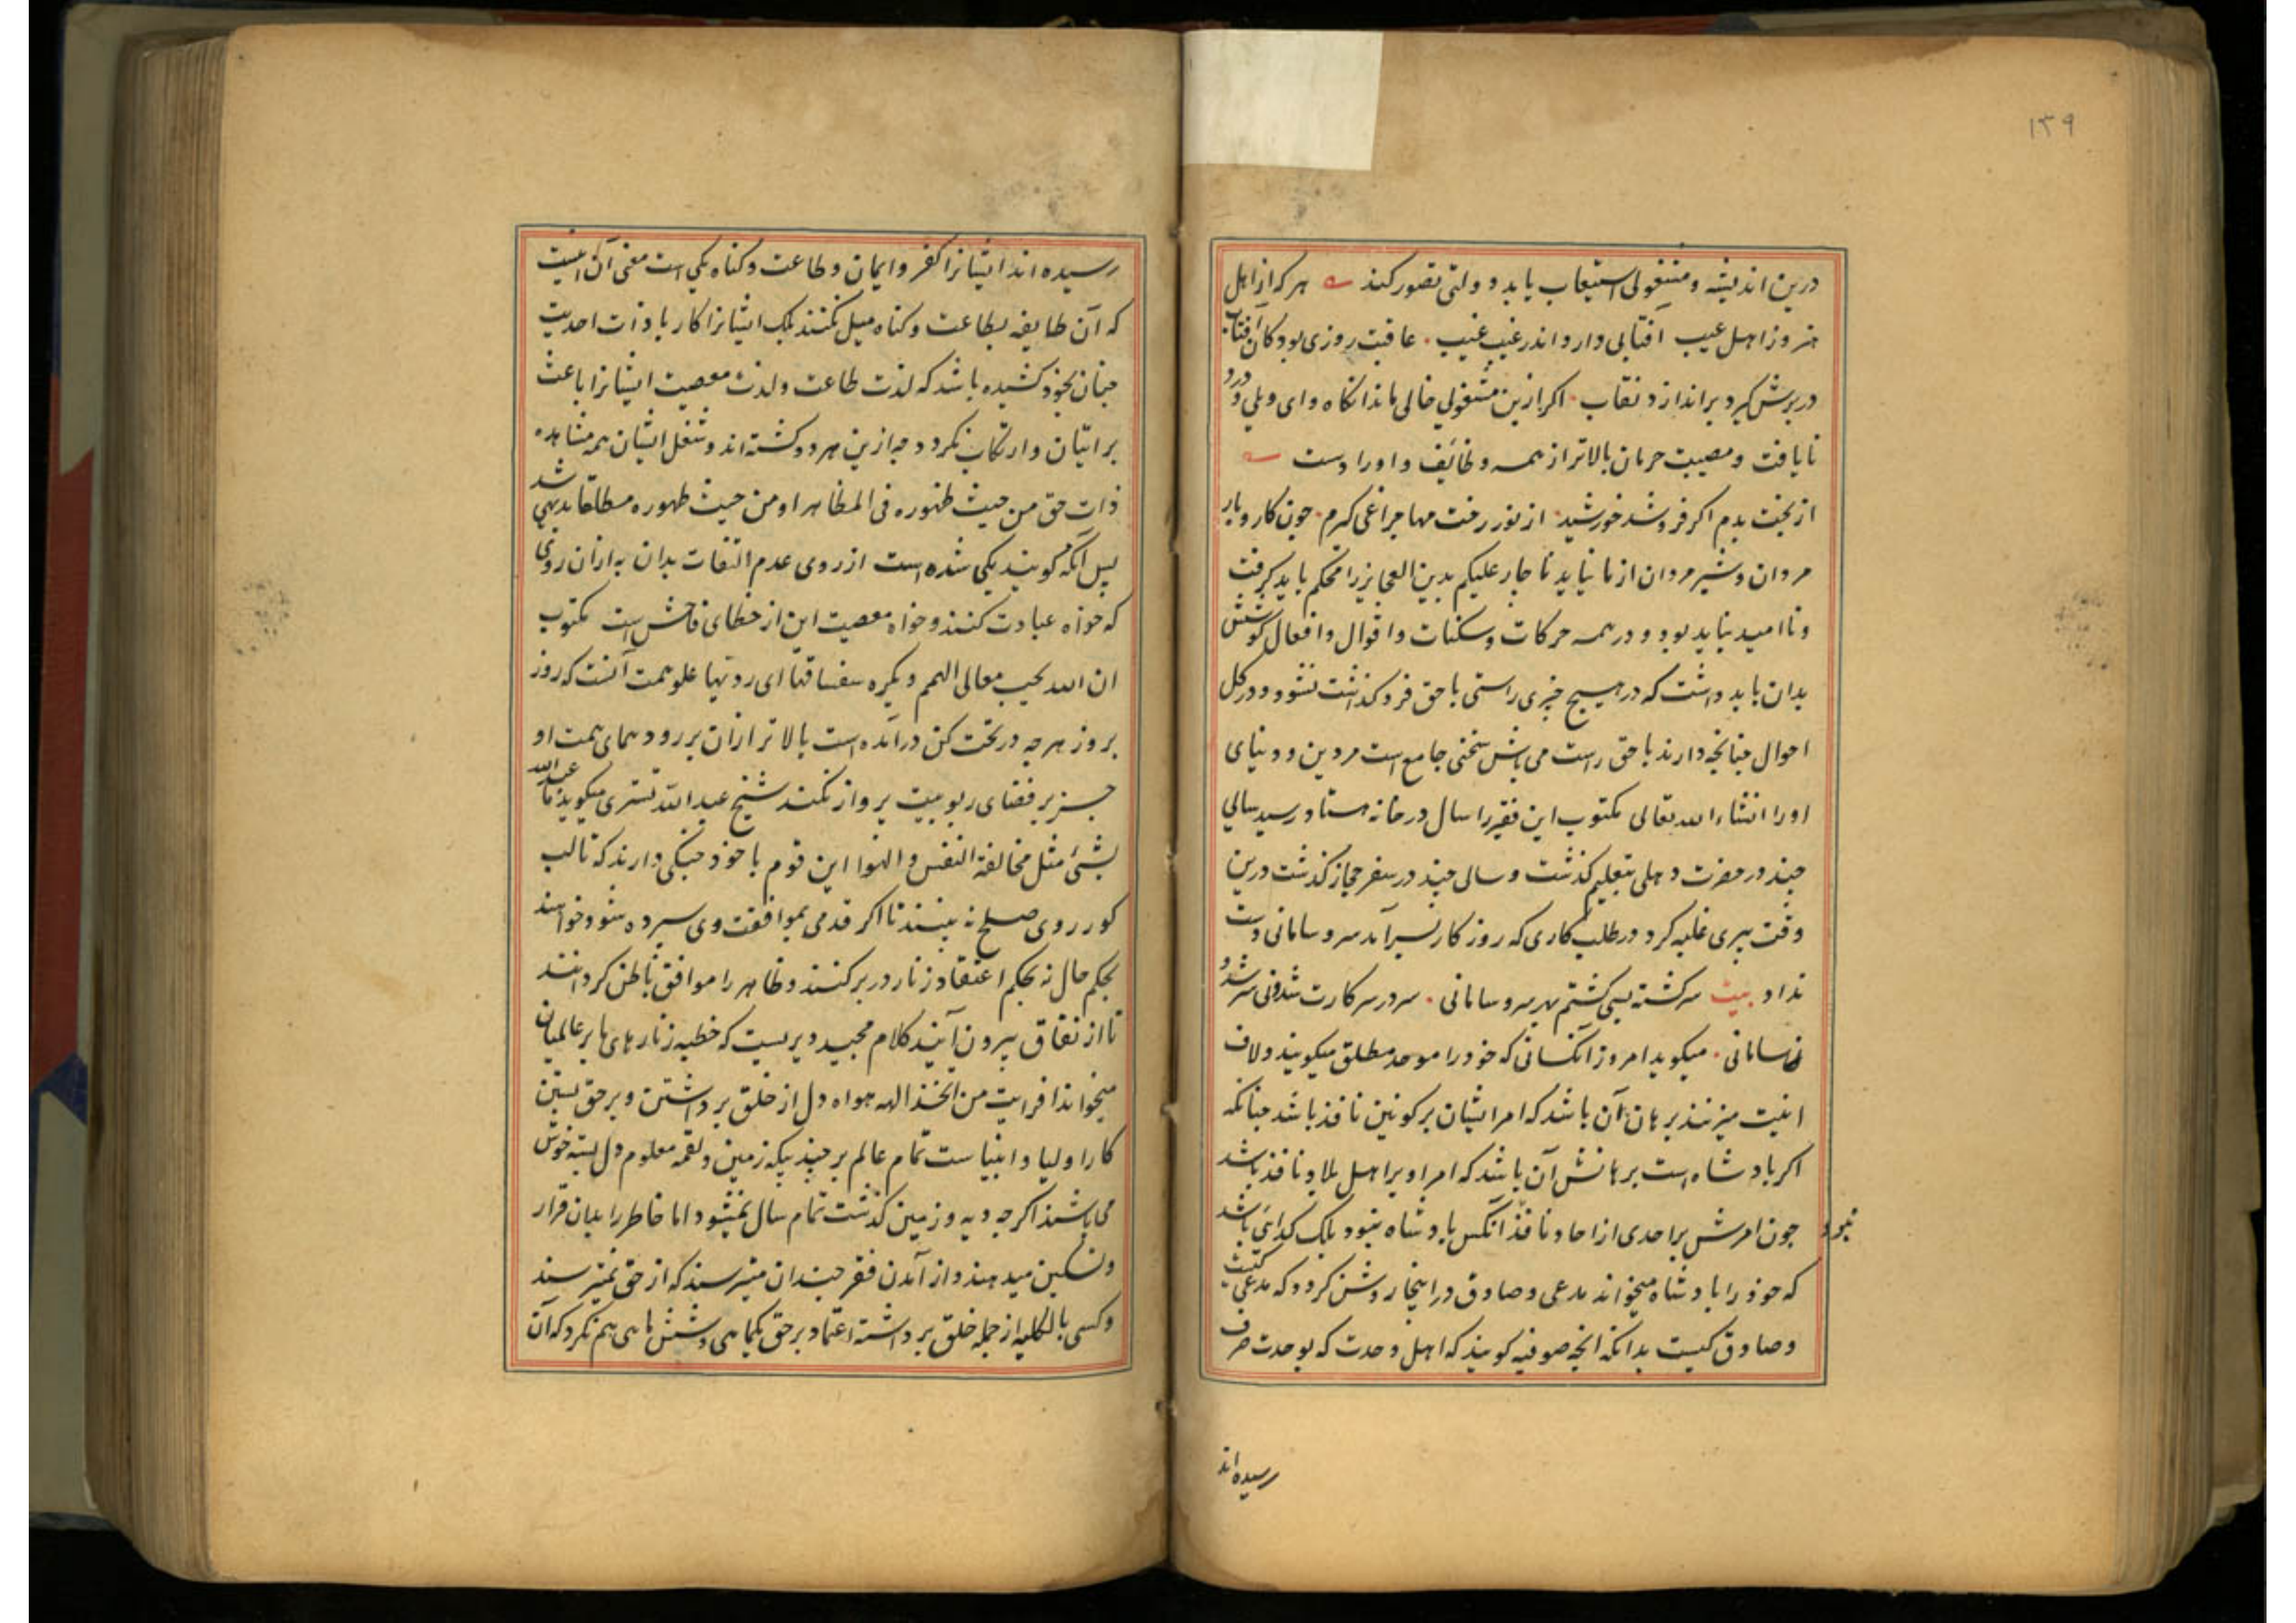 ۱۳۹
درین اندیشه و مشغولی استیعاب یابد دولتی تصور کند هر که از اهل
هنر و ز اهل عیب آفتابی دارد اندر غیب غیب عاقبت روزی بود کان آفتاب
در برش گیرد براندازد نقاب اکر ازین مشغولی خالی ماند انکاه وای ویلی و درد
نایافت و مصیبت حرمان بالاتر از همه وظائف و اوراد است
از بخت بدم اکر فرو شد خورشید از نور رخت مها چراغی کیرم چون کار و بار
مردان و شیر مردان از ما نیاید ناچار علیکم بدین العجایز را محکم باید کرفت
و ناامید نباید بود و در همه حرکات و سکنات و اقوال و افعال کوشش
بدان باید داشت که در هیچ چیزی راستی با حق فرو کذاشت نشود و در کل
احوال چنانچه دارند با حق راست می باش سخنی جامع است مر دین و دنیای
اورا انشاء الله تعالی مکتوب این فقیر را سال در خانه هشتاد رسید سالی
چند در حضرت دهلی بتعلیم کذشت و سالی چند در سفر حجاز کذشت درین
وقت پیری غلبه کرد در طلب کاری که روز کار بسر آمد سر و سامانی دست
نداد بیت سر کشته بسی کشتم بهر سر و سامانی سر در سر کارت شد نی سر شد و
نی سامانی میکوید امروز آنکسانی که خود را موحد مطلق میکویند و لاف
انیت میزنند برهان آن باشد که امر ایشان بر کونین نافذ باشد چنانکه
اکر بادشاه است برهانش آن باشد که امر او بر اهل بلاد نافذ باشد
چون امرش بر احدی از احاد نافذ نبود آنکس بادشاه نبود بلک کدایی باشد
که خود را بادشاه میخواند مدعی و صادق در اینجا روشن کردد که مدعی کیست
و صادق کیست بدانکه انچه صوفیه کویند که اهل وحدت که بوحدت صرف
رسیده اند
رسیده اند ایشانرا کفر و ایمان و طاعت و کناه یکی است معنی آن انیست
که آن طایفه بطاعت و کناه میل نکنند بلک ایشانرا کار با ذات احدیت
چنان بخود کشیده باشد که لذت طاعت و لذت معصیت ایشانرا باعث
بر اتیان و ارتکاب نکردد چه ازین هر دو کشته اند و شغل ایشان همه مشاهده
ذات حق من حیث ظهوره فی المظاهر او من حیث ظهوره مطلقا بدیهی شد
پس آنکه کویند یکی شده است از روی عدم التفات بدان نه از ان روی
که خواه عبادت کنند و خواه معصیت این از خطای فاحش است مکتوب
ان الله یحب معالی الهمم و یکره سفسافها ای ردیها علو همت آنست که روز
بروز هر چه در تحت کن درآمده است بالاتر از ان بر رود همای همت او
جز بر فضای ربوبیت پرواز نکند شیخ عبد الله تستری میکوید ما عبد الله
بشئ مثل مخالفة النفس و الهوا این قوم با خود جنکی دارند که تا لب
کور روی صلح نه بینند تا اکر قدمی بموافقت وی سپرده شود خواهند
بحکم حال نه بحکم اعتقاد زنار در بر کنند و ظاهر را موافق باطن کردانند
تا از نفاق بیرون آیند کلام مجید دیریست که خطبه زنارهای ما بر عالمیان
میخواند افرایت من اتخذ الهه هواه دل از خلق برداشتن و بر حق بستن
کار اولیا و انبیاست تمام عالم بر چند بیکه زمین و لقمه معلوم دل بسته خوش
می باشند اکر چه دیه و زمین کذشت تمام سال نمیشود اما خاطر را بدان قرار
و تسکین میدهند و از آمدن فقر چندان میترسند که از حق نمیترسند
و کسی بالکلیه از جمله خلق برداشته اعتماد بر حق یکماهی و شش ماهی هم نکرد که آن